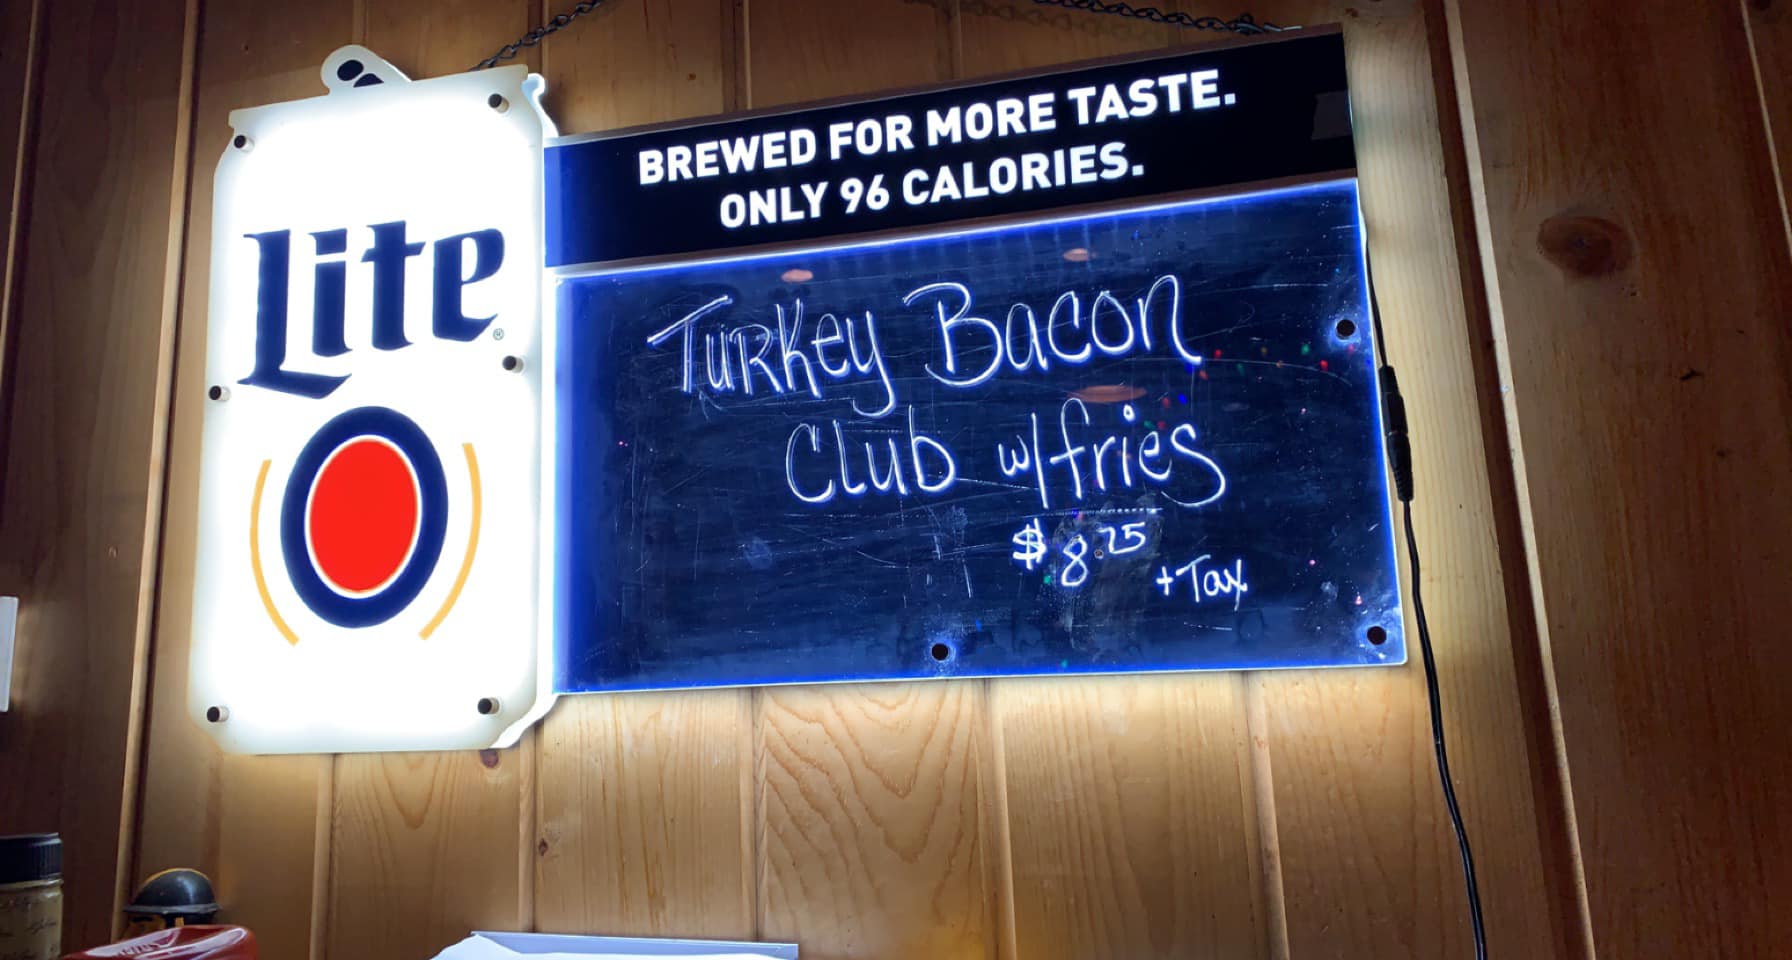 Lite
BREWED FOR MORE TASTE.
ONLY 96 CALORIES.
Turkey Bacon
Club w/fries
$8.25
+Tax